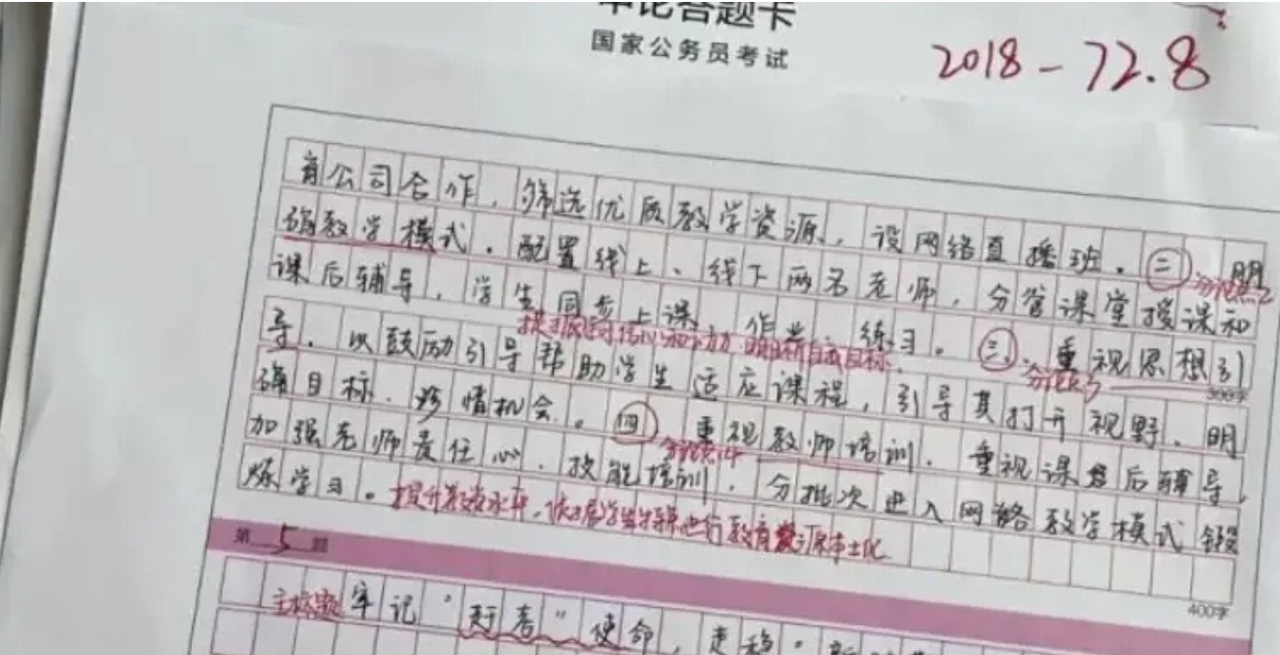 申论答题卡
国家公务员考试
2018-72.8
育公司合作，筛选优质教学资源，设网络直播班。㊁明
确教学模式。配置线上、线下两名老师，分管课堂授课和
分论点2
课后辅导，学生同步上课、作业、练习。㊂重视思想引
提振对信心和动力，明晰自我目标。
分论点3
300字
导。以鼓励引导帮助学生适应课程，引导其打开视野、明
确目标、珍惜机会。㊃重视教师培训。重视课后辅导，
分论点4
加强老师责任心、技能培训，分批次进入网络教学模式锻
炼学习。提升教学水平，依据学生特殊进行教育资源本土化
第5题
400字
主标题 牢记“赶考”使命，走稳“新